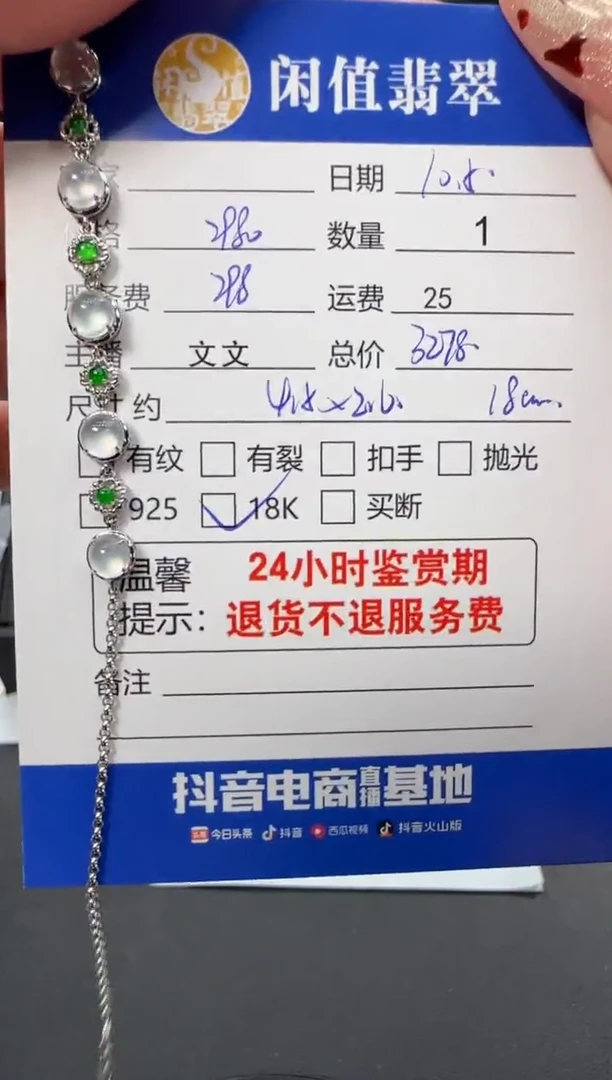 闲值翡翠
家 日期 10.8
格 2980 数量 1
服务费 298 运费 25
主播 文文 总价 3278
尺寸约 4.8×2.6 18cm
有纹 有裂 扣手 抛光
925 18K 买断
温馨 24小时鉴赏期
提示: 退货不退服务费
备注
抖音电商直播基地
今日头条 抖音 西瓜视频 抖音火山版